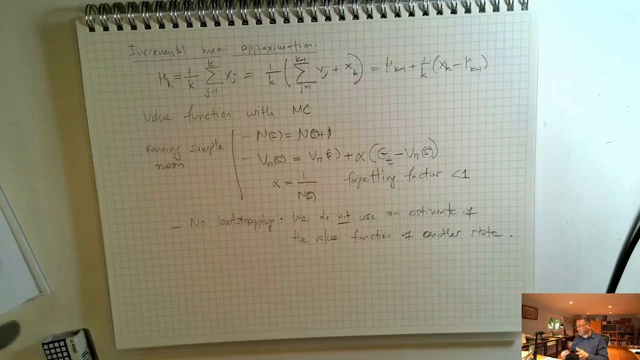 Incremental mean approximation:
μ_k = 1/k Σ_{j=1}^{k} x_j = 1/k ( Σ_{j=1}^{k-1} x_j + x_k ) = μ_{k-1} + 1/k (x_k − μ_{k-1})
Value function with MC
running sample mean
− N(s) = N(s)+1
− V_π(s) = V_π(s) + α (G_t − V_π(s))
α = 1/N(s) forgetting factor <1
− No bootstrapping: We do not use an estimate of
the value function of another state.